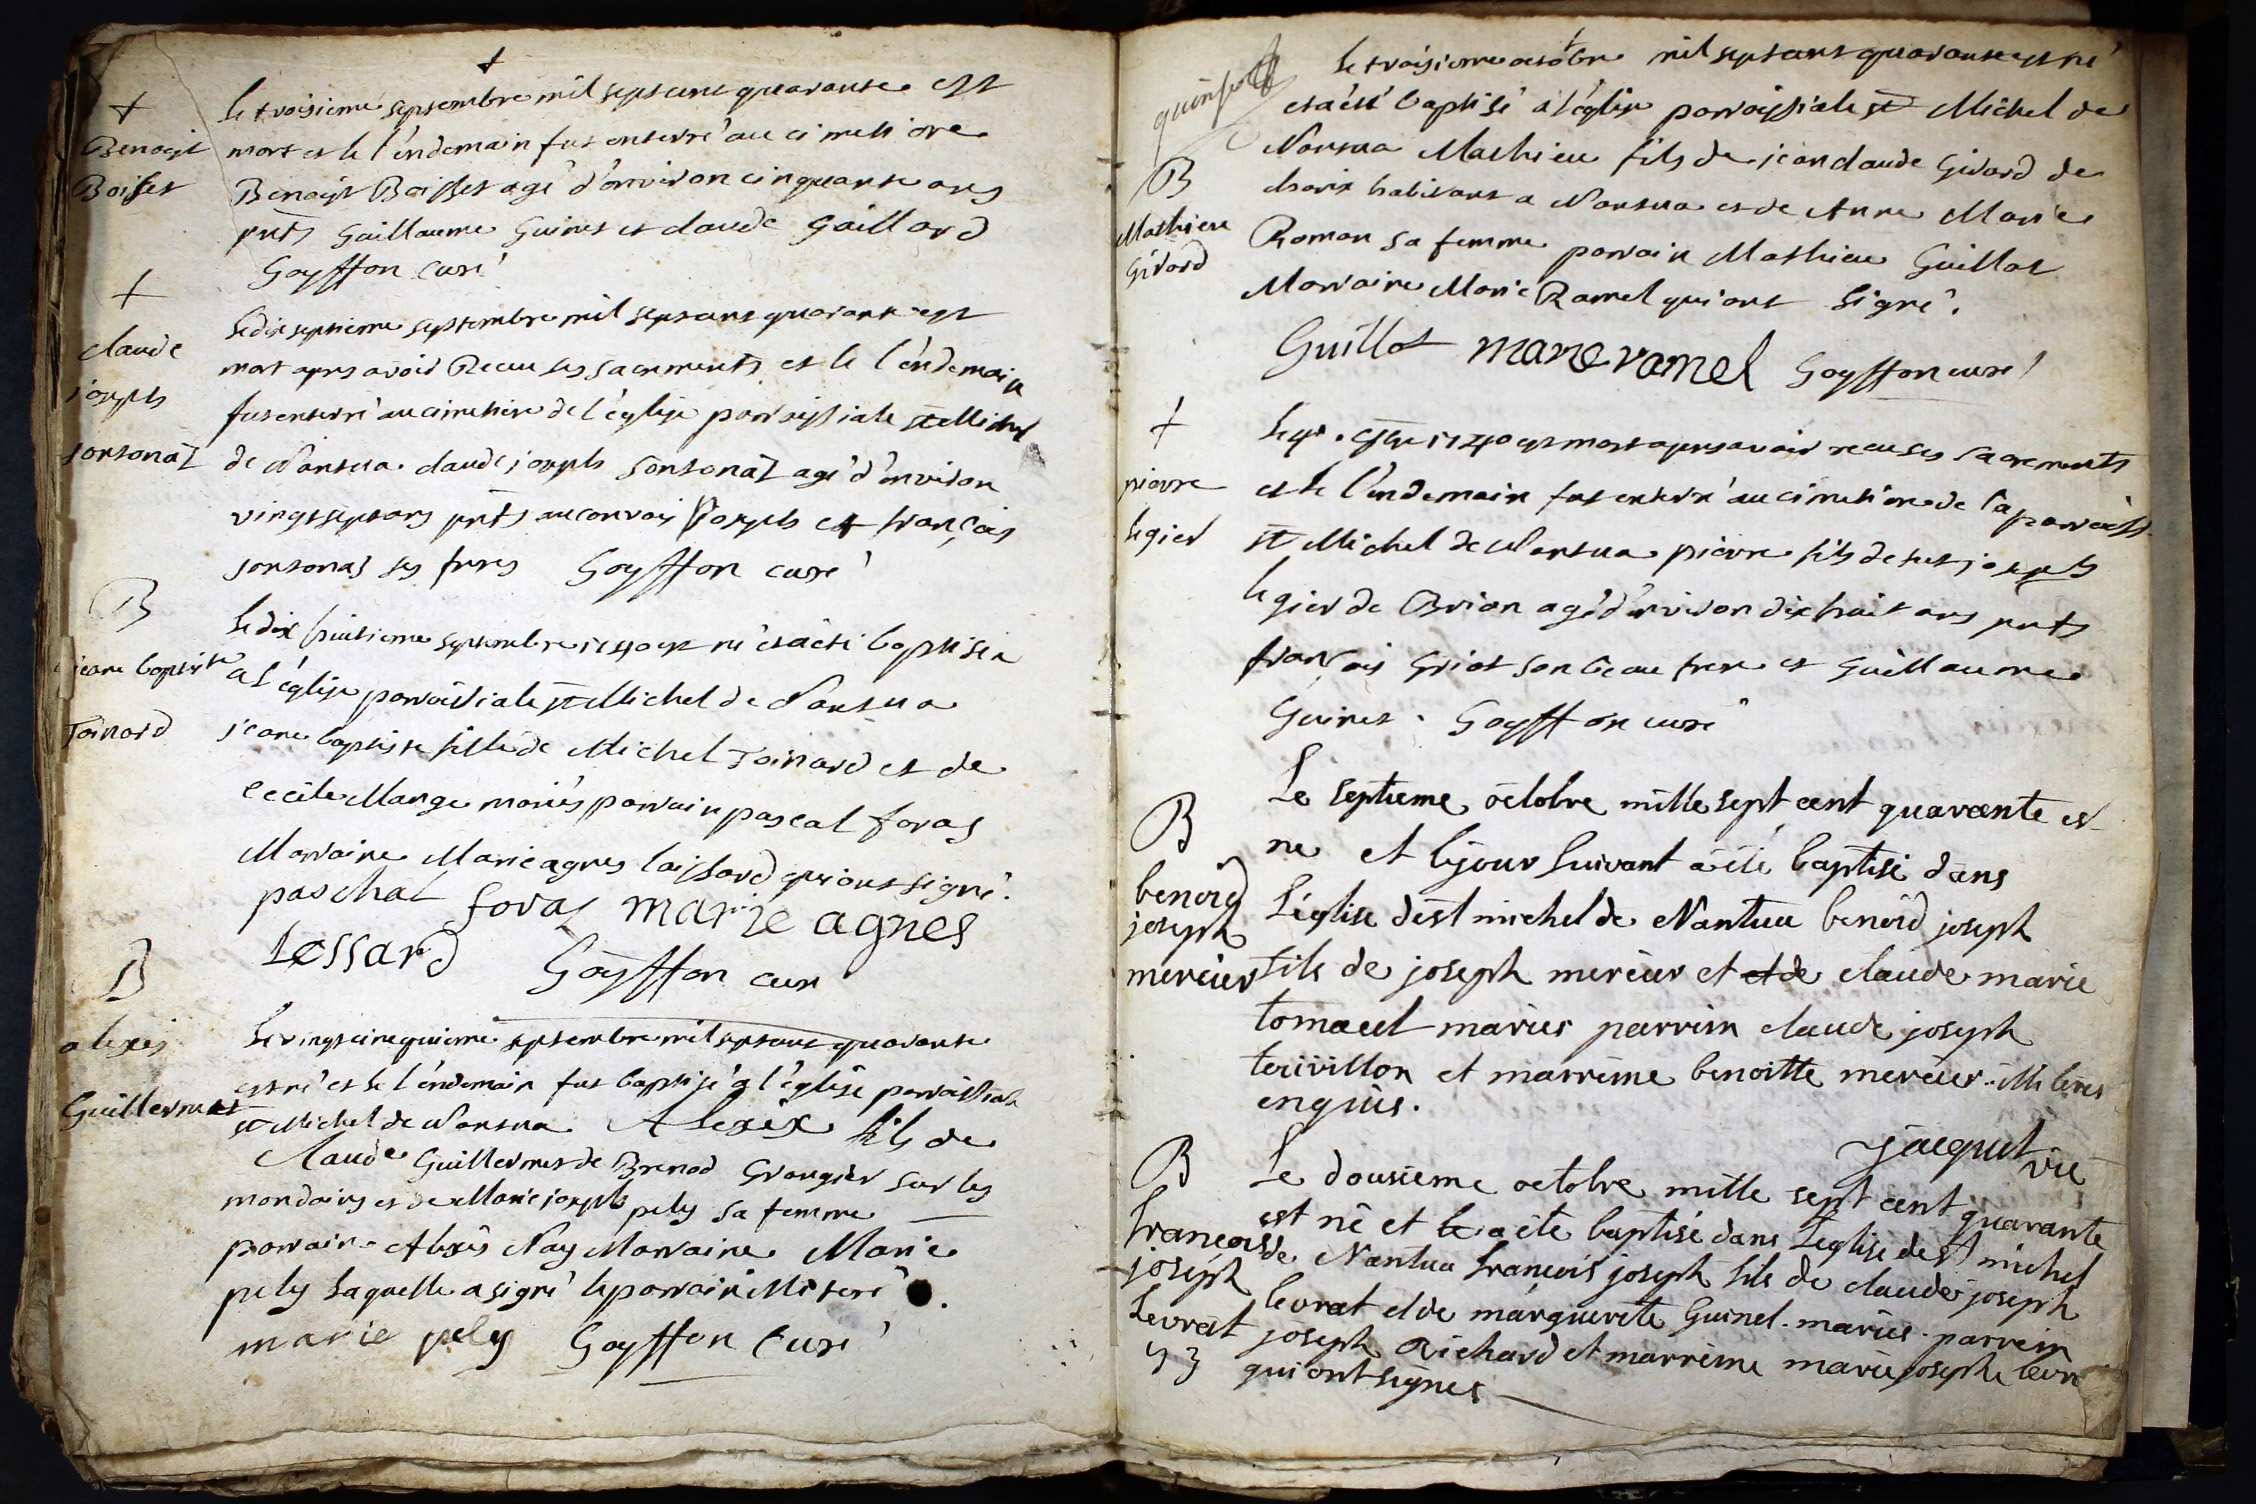 +
+
Benoyt
Boisset
Le troisieme septembre mil sept cens quarante est
mort et le l'endemain fut enterré au cimetiere
Benoyt Boisset agé d'environ cinquante ans
pnts Guillaume Guinet et claude Gaillard
Goyffon curé
+
claude
joseph
sonsonaz
Le dix septieme septembre mil sept cens quarante est
mort apres avoir Receu ses sacrements et le l'endemain
fut enterré au cimetiere de l'eglise parroissiale st Michel
de Nantua claude joseph sonsonaz agé d'environ
vingt sept ans pnts au convoi joseph et françois
sonsonaz ses freres Goyffon curé
B
jeane baptiste
Toinard
Le dix huitieme septembre 1740 est né et a èté baptisèe
a l'église parroissiale st Michel de Nantua
jeane baptiste fille de Michel Toinard et de
cecile Mange mariés parrain pascal foras
Marraine Marie agnes laissard qui ont signé.
paschal foras marie agnes
Lessard Goyffon cur
B
alexis
Guillermet
Le vingt cinquieme septembre mil sept cens quarante
est né et le l'endemain fut baptisé a l'église parroissiale
st Michel de Nantua Alexix fils de
Claude Guillermet de Brenod Grangier sur les
mondains et de Marie joseph pely sa femme
parrain Alexis Nay Marraine Marie
pely laquelle a signé le parrain illiteré.
marie pely Goyffon Curé
B
Mathieu
Girard
Le troisieme octobre mil sept cens quarante est né
et a été baptisé a l'église parroissiale st Michel de
Nantua Mathieu fils de jean claude Girard de
charix habitant a Nantua et de Anne Marie
Roman sa femme parrain Mathieu Guillot
Marraine Marie Ramel qui ont signé.
Guillot marie ramel Goyffon curé
+
pierre
legier
Le 4e. 1740 est mort apres avoir receu ses sacrements
et le l'endemain fut enterré au cimetiere de la parroiss.
st Michel de Nantua pierre fils de fut joseph
legier de Brion agé d'environ dix huit ans pnts
françois Griot son beau frere et Guillaume
Guinet. Goyffon curé
B
benoid
joseph
mercier
Le septieme octobre mille sept cent quarante est
né et le jour suivant a èté baptisé dans
L'église de st michel de Nantua benoid joseph
fils de joseph mercier et et de claude marie
tomaset mariés parrein claude joseph
et marréine benoitte mercier illiterés
enquis.
jacquet vic
B
François
joseph
Levrat
43
Le dousieme octobre mille sept cent quarante
est né et le a èté baptisé dans L'église de st michel
de Nantua François joseph fils de claude joseph
levrat et de marguerite Guinet mariés parrein
joseph Richard et marréine marie joseph levra
qui ont signés